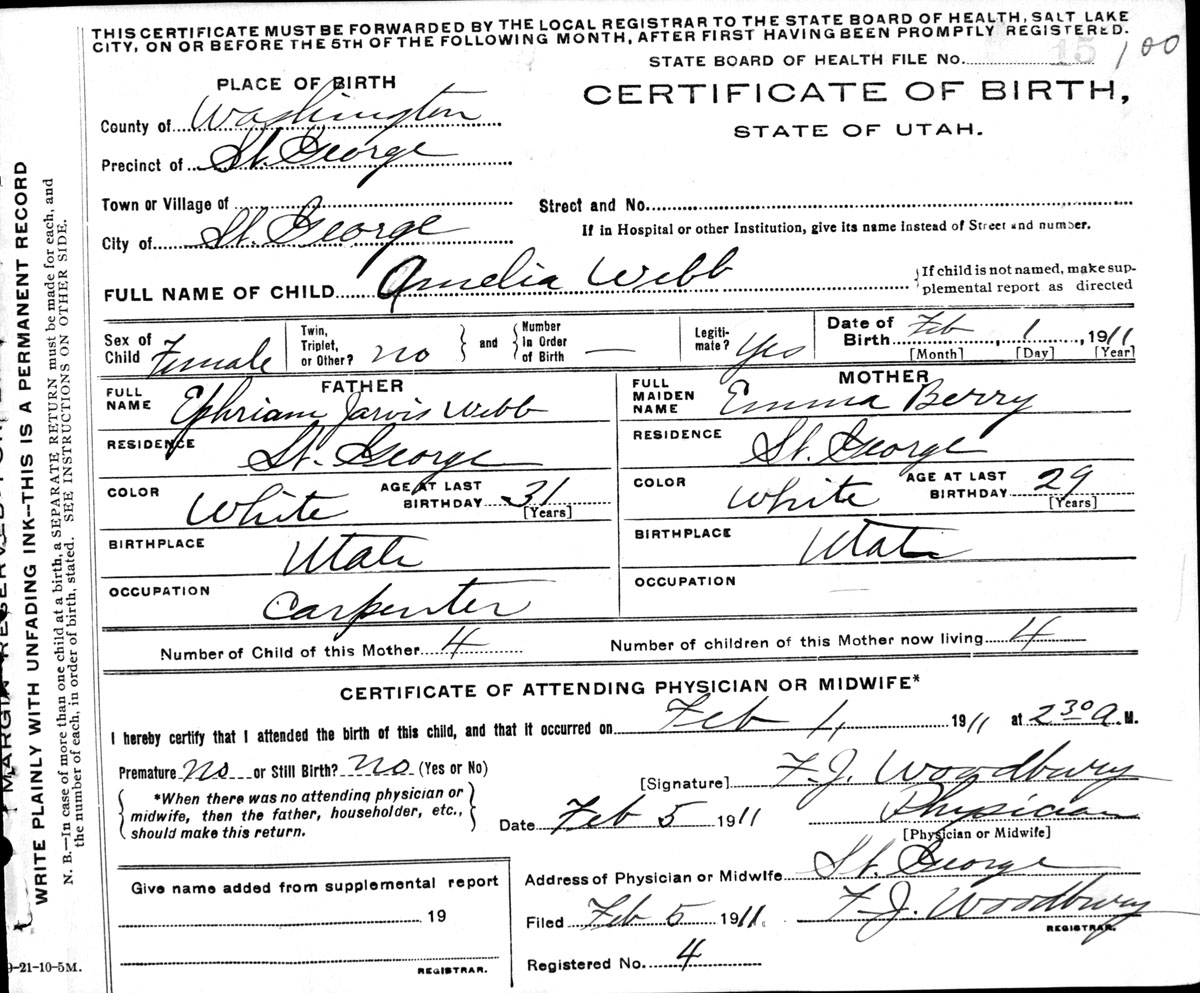 THIS CERTIFICATE MUST BE FORWARDED BY THE LOCAL REGISTRAR TO THE STATE BOARD OF HEALTH, SALT LAKE
CITY, ON OR BEFORE THE 5TH OF THE FOLLOWING MONTH, AFTER FIRST HAVING BEEN PROMPTLY REGISTERED.
STATE BOARD OF HEALTH FILE No. 15 100
PLACE OF BIRTH
CERTIFICATE OF BIRTH,
STATE OF UTAH.
County of Washington
Precinct of St. George
Town or Village of
Street and No.
City of St. George
If in Hospital or other Institution, give its name instead of Street and number.
FULL NAME OF CHILD Amelia Webb
If child is not named, make sup-
plemental report as directed
Sex of Child Female
Twin, Triplet, or Other? no
and
Number in Order of Birth —
Legiti-mate? Yes
Date of Birth Feb, 1, 1911
[Month] [Day] [Year]
FATHER
FULL NAME Ephriam Jarvis Webb
RESIDENCE St. George
COLOR White
AGE AT LAST BIRTHDAY 31
[Years]
BIRTHPLACE Utah
OCCUPATION Carpenter
MOTHER
FULL MAIDEN NAME Emma Berry
RESIDENCE St. George
COLOR White
AGE AT LAST BIRTHDAY 29
[Years]
BIRTHPLACE Utah
OCCUPATION —
Number of Child of this Mother 4
Number of children of this Mother now living 4
CERTIFICATE OF ATTENDING PHYSICIAN OR MIDWIFE*
I hereby certify that I attended the birth of this child, and that it occurred on Feb 1, 1911 at 2 30 a. M.
Premature No or Still Birth? No (Yes or No)
*When there was no attending physician or
midwife, then the father, householder, etc.,
should make this return.
[Signature] F. J. Woodbury
Physician
[Physician or Midwife]
Date Feb 5 1911
Address of Physician or Midwife St. George
Filed Feb 5 1911 F. J. Woodbury
REGISTRAR.
Registered No. 4
Give name added from supplemental report
19
REGISTRAR.
9-21-10-5M.
WRITE PLAINLY WITH UNFADING INK--THIS IS A PERMANENT RECORD
N. B.—In case of more than one child at a birth, a SEPARATE RETURN must be made for each, and
the number of each, in order of birth, stated. SEE INSTRUCTIONS ON OTHER SIDE.